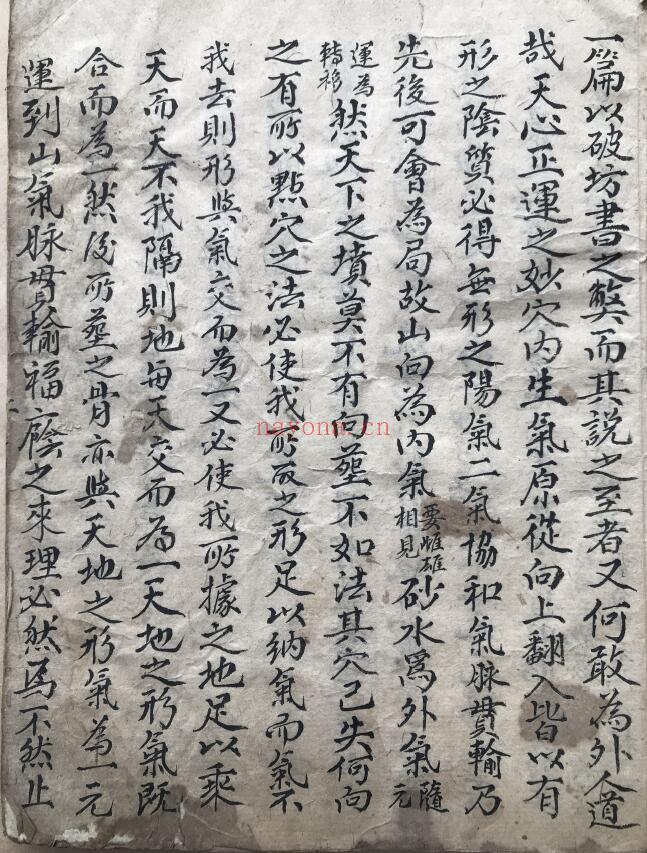 一篇以破坊書之弊而其說之至者又何敢為外人道
哉天心正運之妙穴內生氣原從向上翻入皆以有
形之陰質必得無形之陽氣二氣協和氣脉貫輸乃
先後可會為局故山向為內氣要雌雄相見砂水為外氣隨元
運為轉移然天下之墳莫不有向塟不如法其穴已失何向
之有所以點穴之法必使我所取之形足以納氣而氣不
我去則形與氣交而為一又必使我所據之地足以乘
天而天不我隔則地每天交而為一天地之形氣既
合而為一然後所塟之骨亦與天地之形氣為一元
運到山氣脉貫輸福廕之來理必然焉不然止
nayona.cn